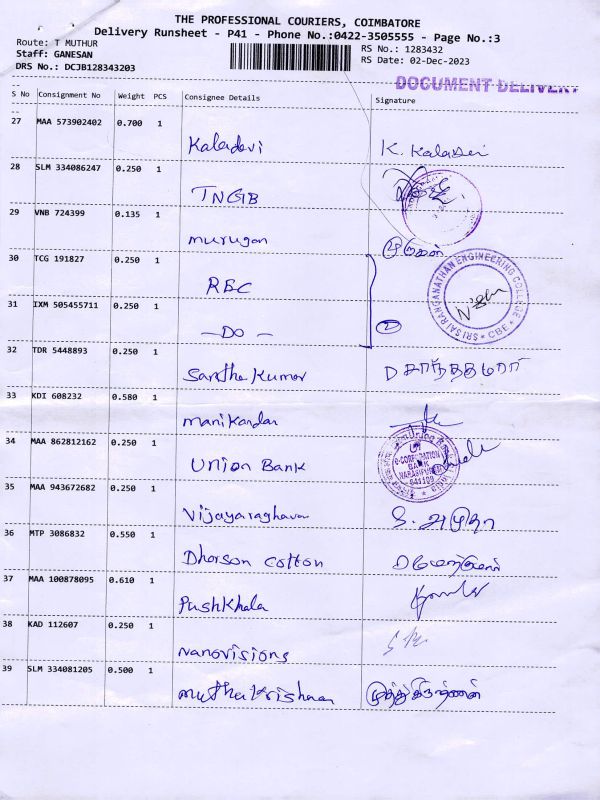 THE PROFESSIONAL COURIERS, COIMBATORE
Delivery Runsheet - P41 - Phone No.:0422-3505555 - Page No.:3
Route: T MUTHUR
Staff: GANESAN
DRS No.: DCJB128343203
RS No.: 1283432
RS Date: 02-Dec-2023
DOCUMENT DELIVERY
S No Consignment No Weight PCS Consignee Details Signature
27 MAA 573902402 0.700 1
Kaladevi K. Kaladevi
28 SLM 334086247 0.250 1
TNGB
29 VNB 724399 0.135 1
murugan முருகன்
30 TCG 191827 0.250 1
RBC
SRI SAI RANGANATHAN ENGINEERING COLLEGE * CBE *
31 IXM 505455711 0.250 1
- DO - 2
32 TDR 5448893 0.250 1
Santhakumar
33 KDI 608232 0.580 1
manikandan
34 MAA 862812162 0.250 1
Union Bank
e-CORPORATION
BANK
NARASIPURAM
641109
35 MAA 943672682 0.250 1
Vijayaraghavan S. அமுதா
36 MTP 3086832 0.550 1
Dhorson cotton
37 MAA 100878095 0.610 1
Pushkhala
38 KAD 112607 0.250 1
nanovisions
39 SLM 334081205 0.500 1
muthukrishnan முத்துகிருஷ்ணன்